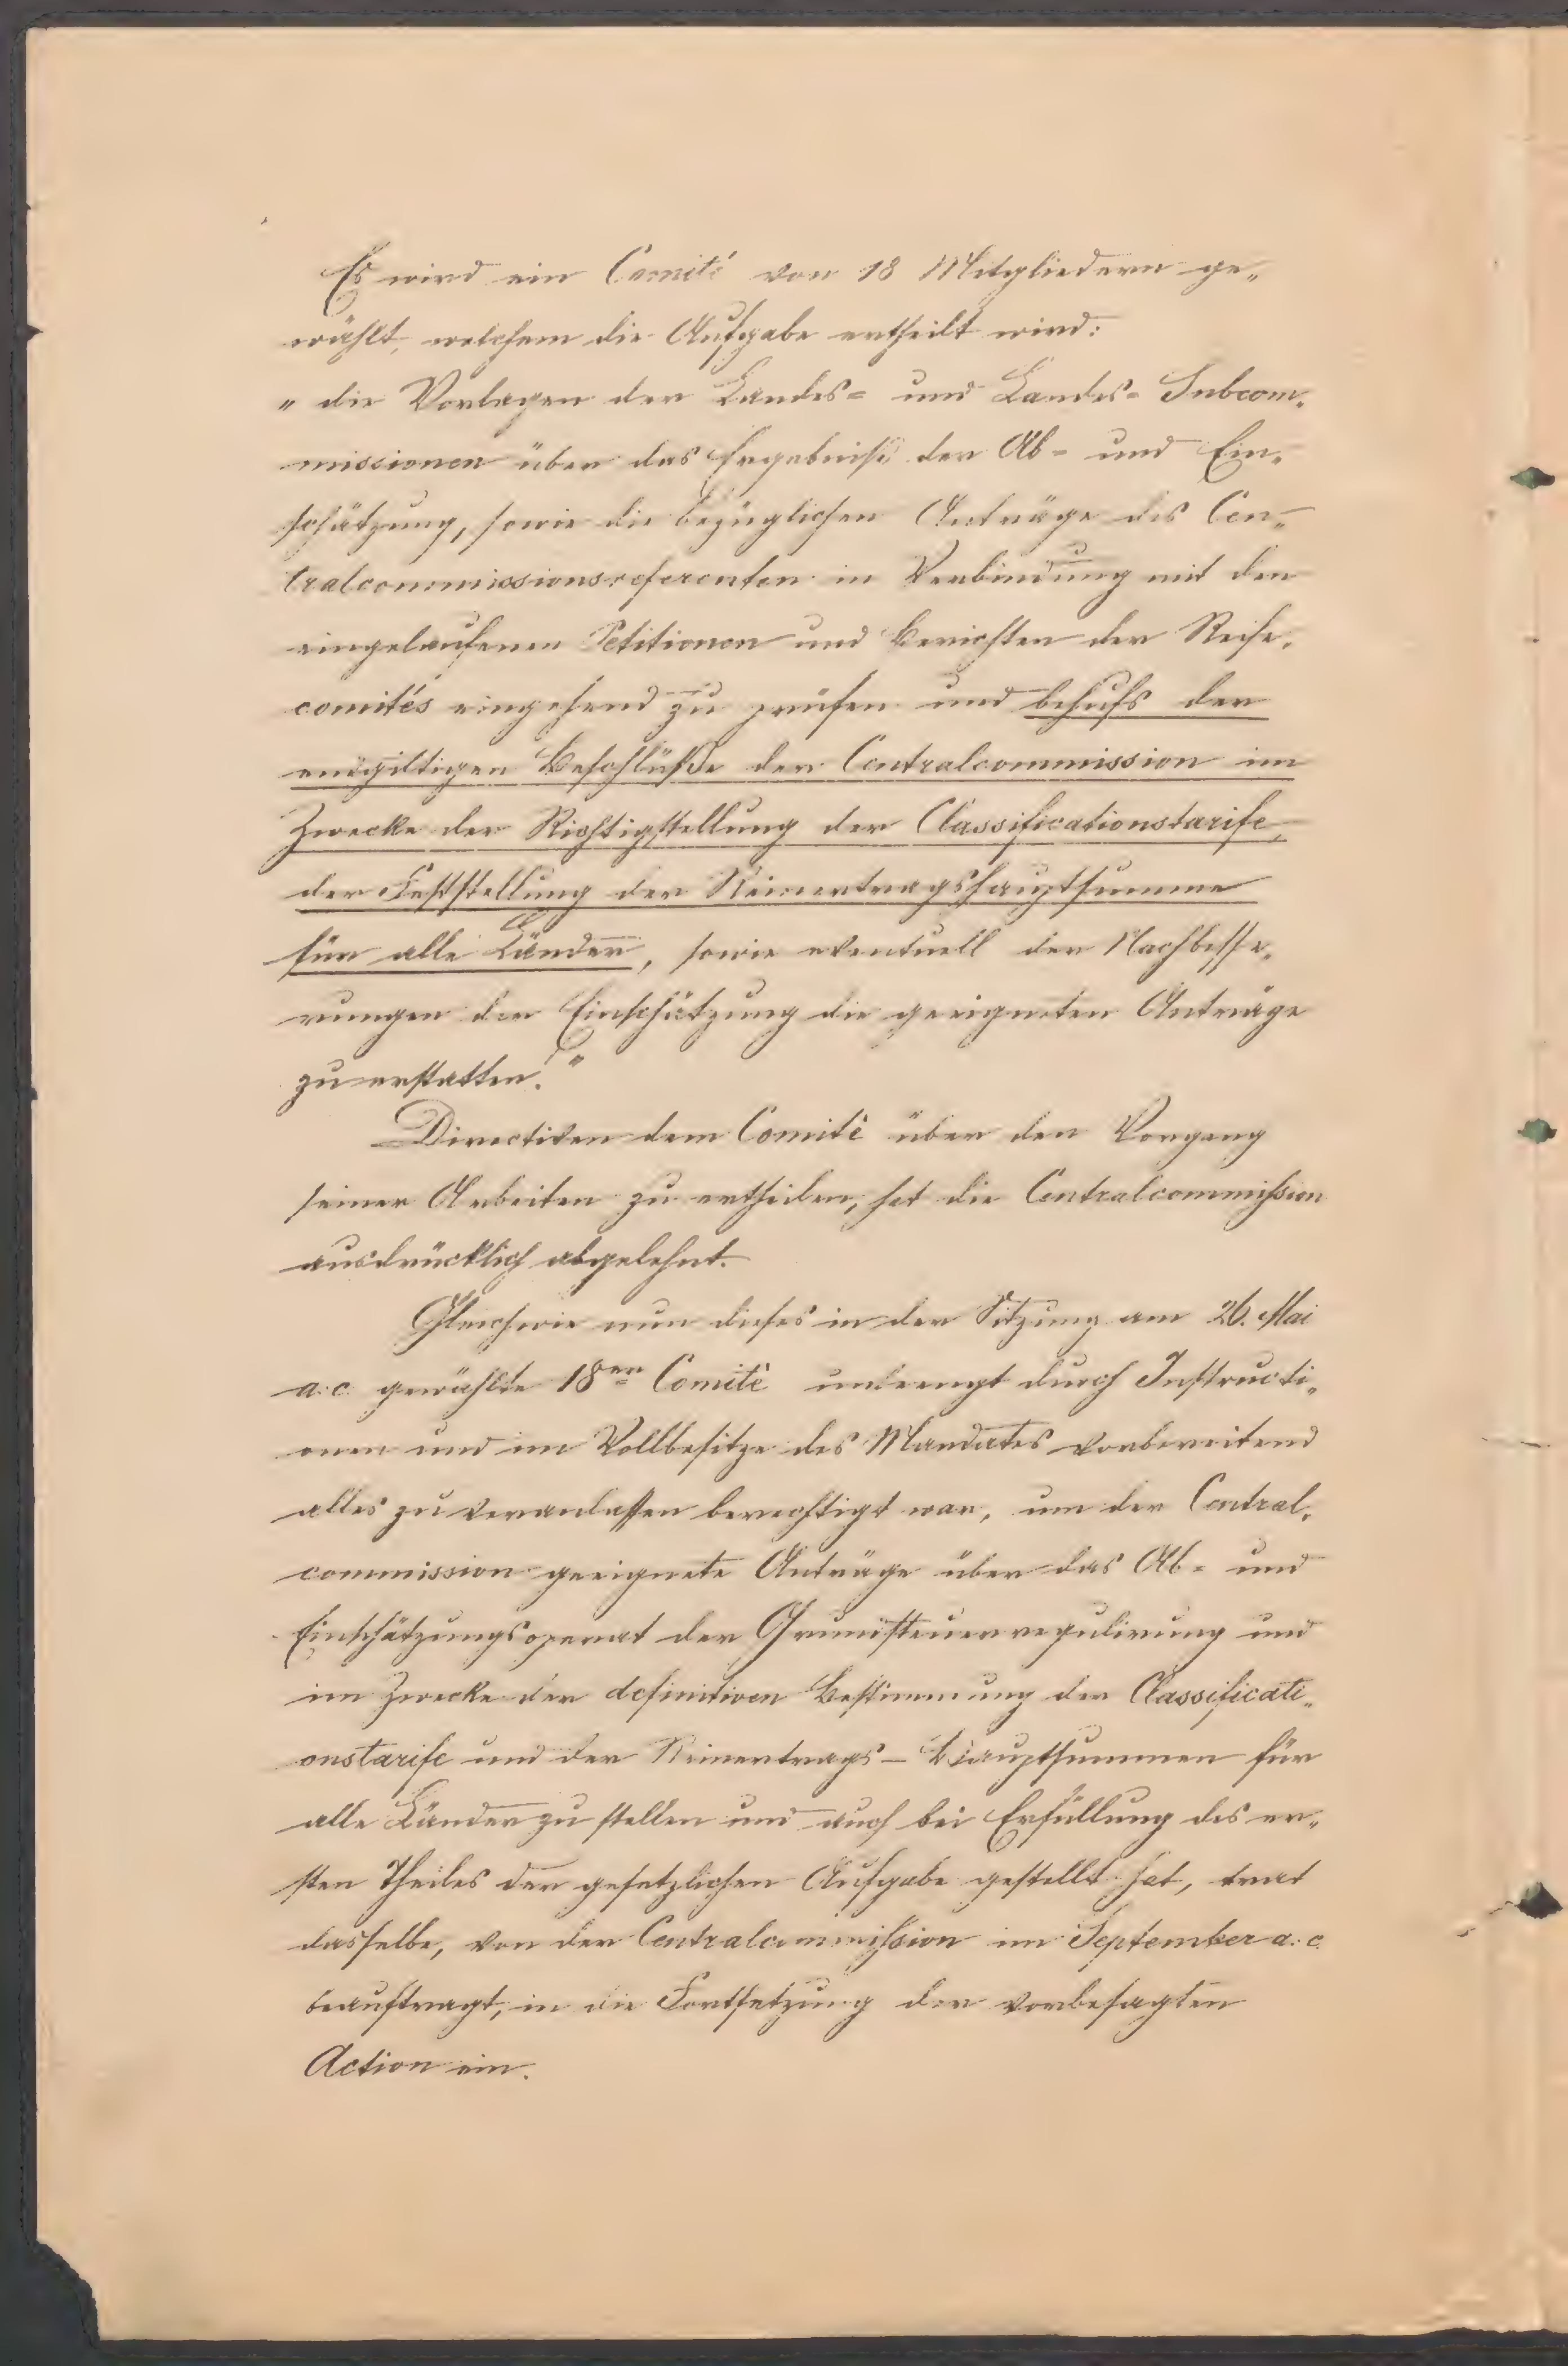 Es wird ein Comité von 18 Mitgliedern ge„
wählt, welchem die Aufgabe ertheilt wird:
„ die Vorlagen der Landes= und Landes= Subcom„
missionen über das Ergebniß der Ab= und Ein„
schätzung, sowie die bezüglichen Anträge des Cen„
tralcommissionsreferenten in Verbindung mit den
eingelaufenen Petitionen und Berichten der Reise„
comités eingehend zu prüfen und behufs der
endgiltigen Beschlüße der Centralcommission im
Zwecke der Richtigstellung der Classificationstarife,
der Feststellung der Reinertragshauptsumme
für alle Länder, sowie eventuell der Nachbesse„
rungen der Einschätzung die geeigneten Anträge
zu erstatten."
Directiven dem Comité über den Vorgang
seiner Arbeiten zu ertheilen, hat die Centralcommission
ausdrücklich abgelehnt.
Gleichwie nun dieses in der Sitzung am 26. Mai
a.c. gewählte 18er Comité unbeengt durch Instructi„
onen und im Vollbesitze des Mandates vorbereitend
alles zu veranlassen berechtigt war, um der Central„
commission geeignete Anträge über das Ab= und
Einschätzungsoperat der Grundsteuerregulirung und
im Zwecke der definitiven Bestimmung der Classificati„
onstarife und der Reinertrags-Hauptsummen für
alle Länder zu stellen und auch bei Erfüllung des er„
sten Theiles der gesetzlichen Aufgabe gestellt hat, trat
dasselbe, von der Centralcommission im September a.c.
beauftragt, in die Fortsetzung der vorbesagten
Action ein.